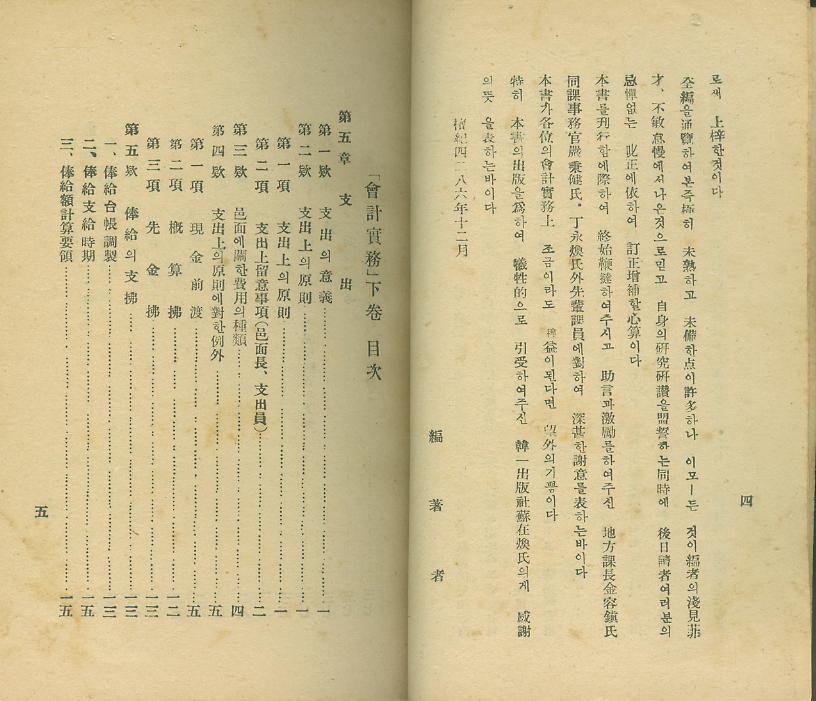 로새 上梓한것이다
全編을通覽하여본즉極히 未熟하고 未備한点이許多하나 이모ー든 것이編者의淺見菲
才, 不敏怠慢에서나온것으로믿고 自身의硏究硏讃을盟誓하는同時에 後日讀者여러분의
忌憚없는 叱正에依하여 訂正增補할心算이다
本書를刊行함에際하여 終始鞭撻하여주시고 助言과激勵를하여주신 地方課長金容鎭氏
同課事務官嚴秉健氏。丁永煥氏外先輩課員에對하여 深甚한謝意를表하는바이다
本書가各位의會計實務上 조금이라도 裨益이된다면 望外의기쁨이다
特히 本書의出版을爲하여 犧牲的으로 引受하여주신 韓一出版社蘇在煥氏의게 感謝
의뜻 을表하는바이다
檀紀四二八六年十二月
編著者
四
「會計實務」下卷 目次
第五章 支出
第一欵 支出의意義 一
第二欵 支出上의原則 一
第一項 支出上의原則 一
第二項 支出上留意事項(邑面長、支出員) 二
第三欵 邑面에關한費用의種類 四
第四欵 支出上의原則에對한例外 五
第一項 現金前渡 五
第二項 槪算拂 一二
第三項 先金拂 一三
第五欵 俸給의支拂 一三
一、俸給台帳調製 一三
二、俸給支給時期 一五
三、俸給額計算要領 一五
五